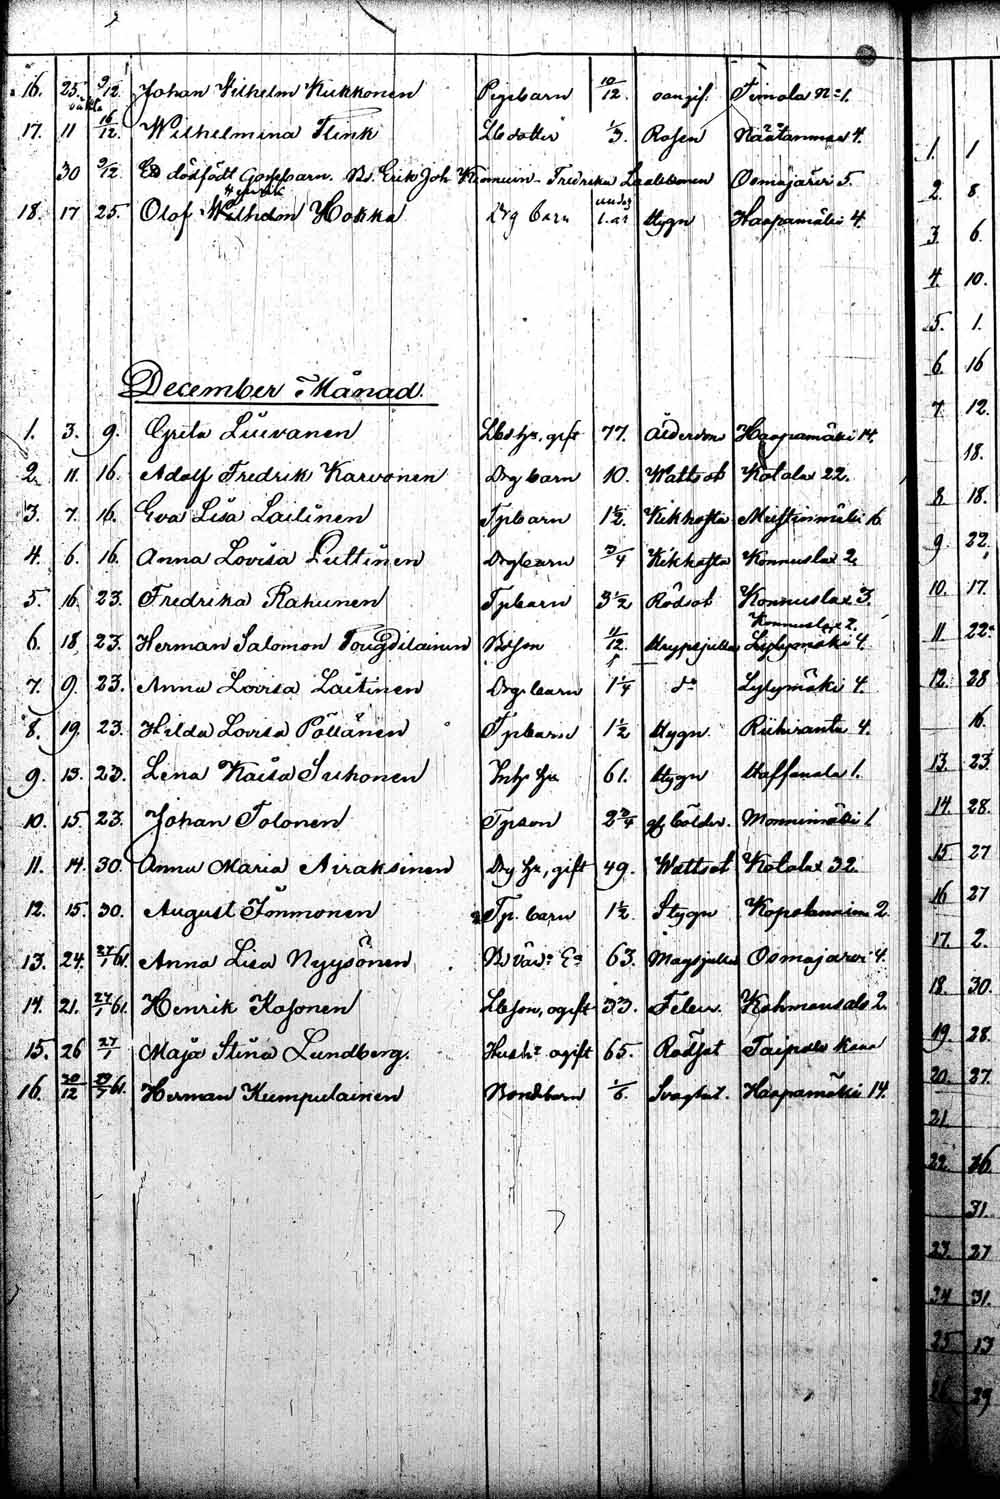 16. 25. 9/12. Johan Wilhelm Kukkonen Pigebarn 10/12. oangif. Timola No 1.
17. 11 16/12. Wilhelmina Flink Lbsdotter 1/3. Rosen Näätänmaa 4.
30 9/12. Ett dödfödt Gossebarn. Bs. Erik Joh Fredrika Osmajärvi 5.
Henrik
18. 17 25. Olof Wilhelm Hokka Drg barn 1. år Stygn Haapamäki 4.
December Månad.
1. 3. 9. Greta Liivanen Lbshu, gift 77. Ålderdom Haapamäki 14.
2. 11. 16. Adolf Fredrik Karvonen Drg barn 10. Wattsot Kotalax 22.
3. 7. 16. Eva Lisa Laitinen Tpbarn 1½. Kikhosta Mustinmäki 16
4. 6. 16. Anna Lovisa Puttinen Drgbarn 3/4 Kikhosta Konnuslax 2.
5. 16. 23. Fredrika Rahunen Tpbarn 3½ Rödsot Konnuslax 3.
Konnuslax 2.
6. 18. 23. Herman Salomon Bsson 11/12. Strypsjuka Lylymäki 4.
7. 9. 23. Anna Lovisa Laitinen Drgbarn 1¼ do Lylymäki 4.
8. 19. 23. Hilda Lovisa Pöllänen Tpbarn 1½ Stygn Riihiranta 4.
9. 13. 23. Lena Kaisa Suhonen Inhs hu 61. Stygn 1.
10. 15. 23. Johan Tolonen Tpson 2¾ Monninmäki 1.
11. 14. 30. Anna Maria Airaksinen Drg hu, gift 49. Wattsot Kotalax 32.
12. 15. 30. August Immonen Tp. barn 1½ Stygn 2.
13. 24. 27/1 61. Anna Lisa Nyysönen Bs 63. Magsjuka Osmajärvi 4.
14. 21. 27/1 61. Henrik Kasonen Lbsson, ogift 33. Feber. 2.
15. 26 27/1 Maja Stina Lundberg. ogift 65. Rödsot Taipale
16. 20/12 61. Herman Kumpulainen Bondebarn 1/6. Haapamäki 14.
1. 1
2. 8
3. 6.
4. 10.
5. 1.
6. 16
7. 12.
18.
8. 18.
9. 22.
10. 17.
11. 22.
12. 28
16.
13. 23.
14. 28.
15. 27
16 27
17. 2.
18. 30.
19. 28.
20. 27.
21.
22. 26.
31.
23. 27
24 31.
25 13
29